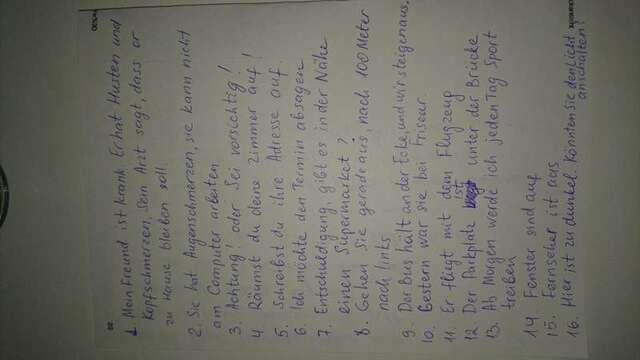 1. Mein Freund ist krank Er hat Husten und
Kopfschmerzen, Sein Arzt sagt, dass er
zu Hause bleiben soll
2. Sie hat Augenschmerzen, sie kann nicht
am Computer arbeiten
3. Achtung! oder Sei vorsichtig!
4 Räumst du deine Zimmer auf!
5. Schreibst du ihre Adresse auf.
6. Ich möchte den Termin absagen
7. Entschuldigung, gibt es in der Nähe
einen Supermarket?
8. Gehen Sie geradeaus, nach 100 Meter
nach links
9. Der Bus hält an der Ecke, und wir steigen aus.
10. Gestern war sie bei Friseur.
11. Er fliegt mit dem Flugzeug
12 Der Parkplatz ist unter der Brücke
13. Ab Morgen werde ich jeden Tag Sport
treiben
14 Fenster sind auf
15. Fernseher ist aus
16. Hier ist zu dunkel. Könnten Sie den Licht
anschalten?